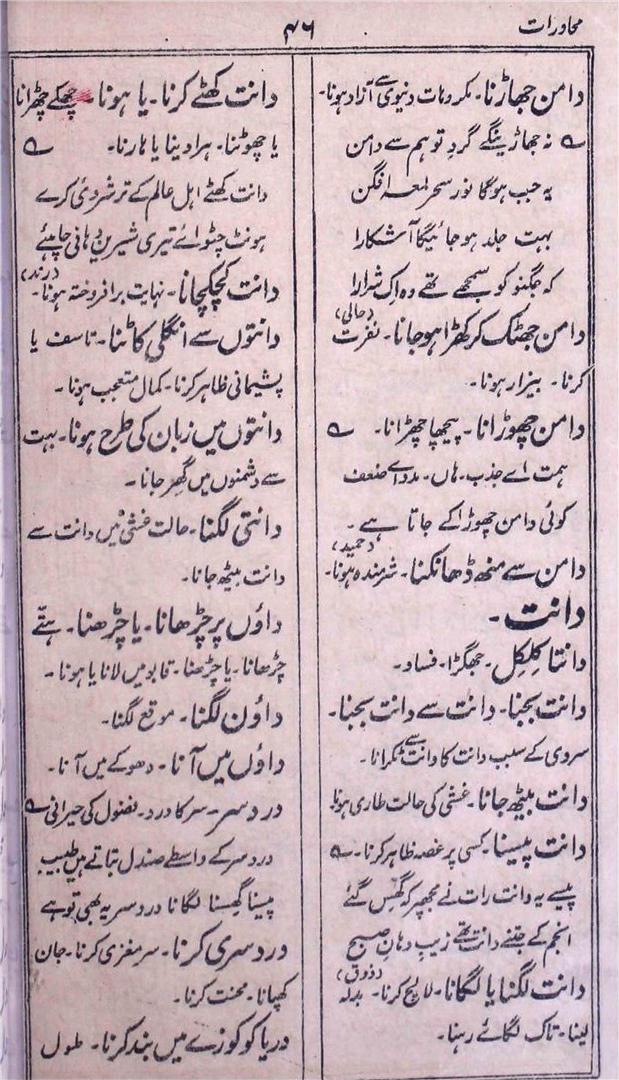 محاورات
۴۶
دامن جھاڑنا۔ مکروہات دنیوی سے آزاد ہونا۔
؎ نہ جھاڑینگے گرد تو ہم سے دامن
یہ جب ہوگا نور سحر لمعہ افگن
بہت جلد ہو جائیگا آشکارا
کہ جگنو کو سمجھے تھے وہ اک شرارا
(حالی)
دامن جھٹک کر کھڑا ہو جانا۔ نفرت
کرنا۔ بیزار ہونا۔
دامن چھوڑانا۔ پیچھا چھڑانا۔ ؎
ہمت اے جذب۔ ہاں۔ مدد اے ضعف
کوئی دامن چھوڑا کے جاتا ہے۔
(حمید)
دامن سے منھ ڈھانکنا۔ شرمندہ ہونا۔
دانت۔
دانتا کِلکِل۔ جھگڑا۔ فساد۔
دانت بجنا۔ دانت سے دانت بجنا۔
سردی کے سبب دانت کا دانت سے ٹکرانا۔
دانت بیٹھ جانا۔ غشی کی حالت طاری ہونا
دانت پیسنا۔ کسی پر غصہ ظاہر کرنا۔ ؎
پیسے یہ دانت رات نے مجھپر کہ گھِس گئے
انجم کے جتنے دانت تھے زیبِ دہانِ صبح
(ذوق)
دانت لگنا یا لگانا۔ لالچ کرنا۔ بدلہ
لینا۔ تاک لگائے رہنا۔
دانت کھٹے کرنا۔ یا ہونا۔ چھکے چھڑانا
یا چھوٹنا۔ ہرا دینا یا ہارنا۔ ؎
دانت کھٹے اہل عالم کے ترشروئی کرے
ہونٹ چٹوائے تیری شیریں دہانی چاہئے
(رند)
دانت کچکچانا۔ نہایت برافروختہ ہونا۔
دانتوں سے انگلی کاٹنا۔ تاسف یا
پشیمانی ظاہر کرنا۔ کمال متعجب ہونا۔
دانتوں میں زبان کی طرح ہونا۔ بہت
سے دشمنوں میں گھِر جانا۔
دانتی لگنا۔ حالت غشی میں دانت سے
دانت بیٹھ جانا۔
داؤں پر چڑھانا۔ یا چڑھنا۔ ہتّے
چڑھانا۔ یا چڑھنا۔ قابو میں لانا یا ہونا۔
داؤن لگنا۔ موقع لگنا۔
داؤں میں آنا۔ دھوکے میں آنا۔
درد سر۔ سر کا درد۔ فضول کی حیرانی ؎
درد سر کے واسطے صندل بتاتے ہیں طبیب
پیسنا گھِسنا لگانا درد سر یہ بھی تو ہے
درد سری کرنا۔ سر مغزی کرنا۔ جان
کھپانا۔ محنت کرنا۔
دریا کو کوزے میں بند کرنا۔ طول